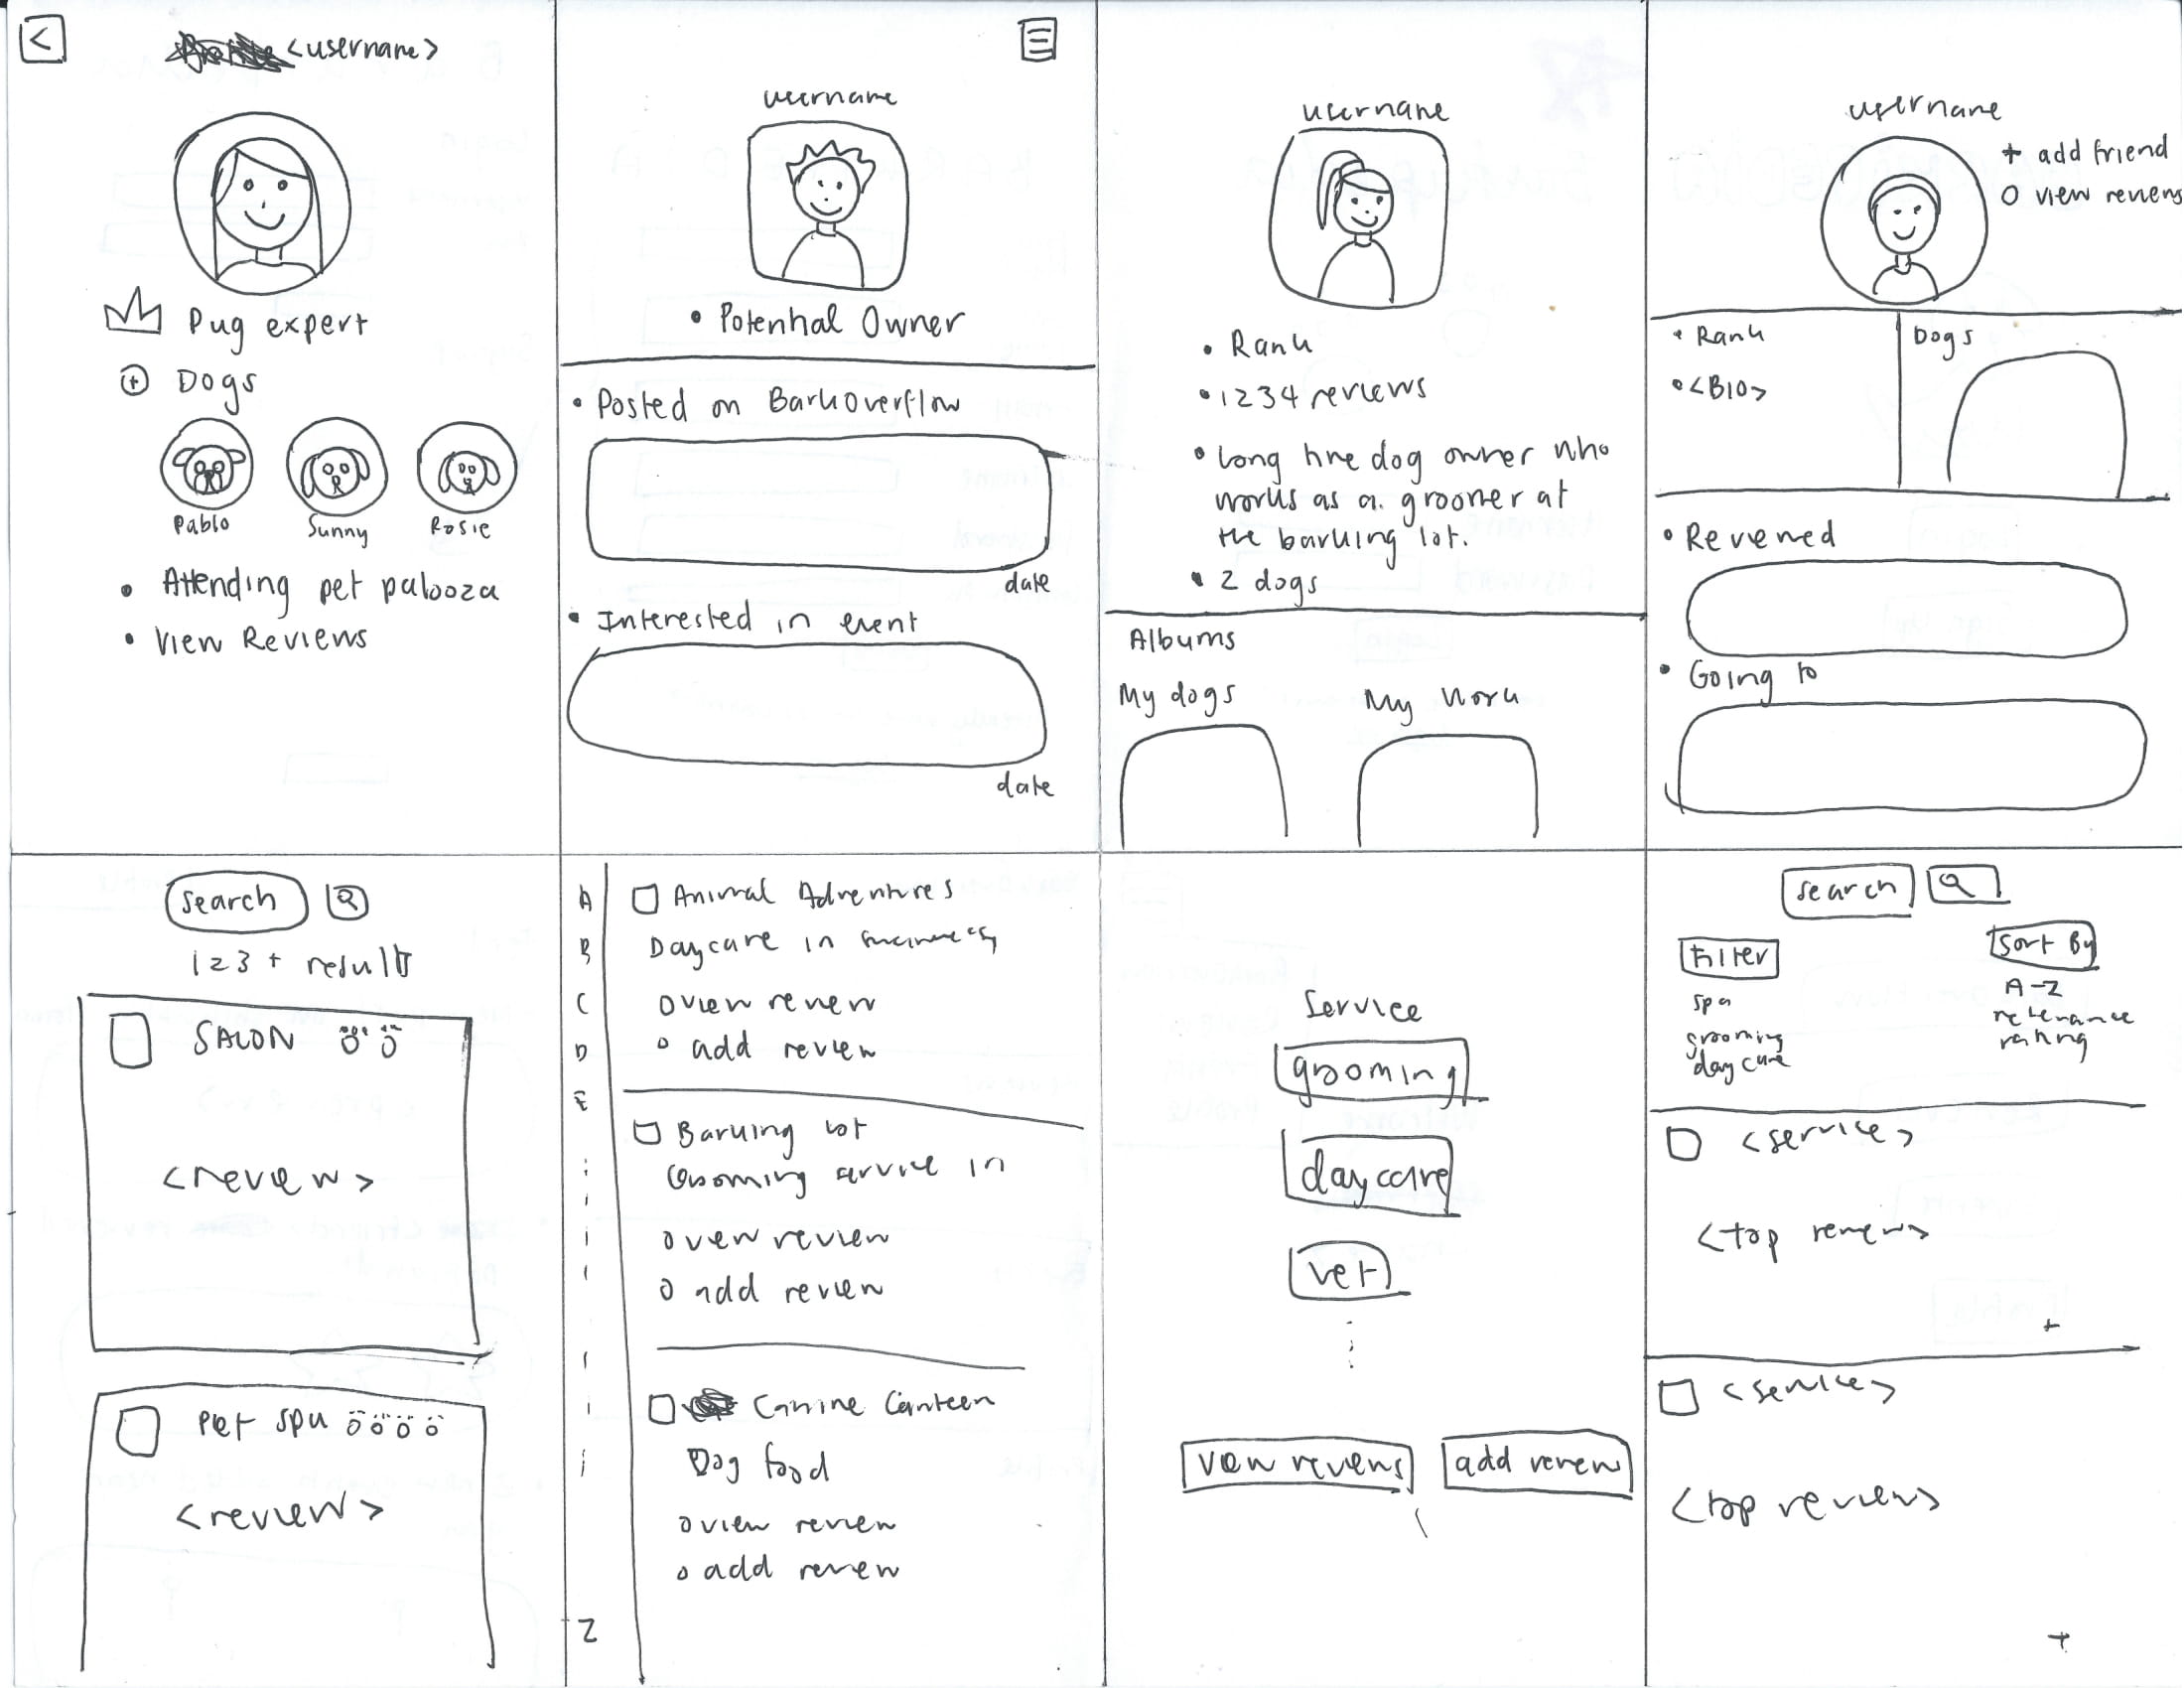 <username>
Pug expert
Dogs
Pablo
Sunny
Rosie
Attending pet palooza
View Reviews
username
Potential Owner
Posted on BarkOverflow
date
Interested in event
date
username
Rank
1234 reviews
long time dog owner who
works as a groomer at
the barking lot.
2 dogs
Albums
My dogs
My Work
username
+ add friend
view reviews
Rank
<BIO>
Dogs
Reviewed
Going to
search
123 + results
SALON
<review>
Pet spa
<review>
A
B
C
D
E
Z
Animal Adventures
Daycare in
view review
add review
Barking Lot
Grooming service in
view review
add review
Canine Canteen
Dog food
view review
add review
Service
grooming
daycare
vet
view reviews
add review
search
Filter
spa
grooming
daycare
Sort By
A-Z
relevance
rating
<service>
<top review>
+
<service>
<top review>
+